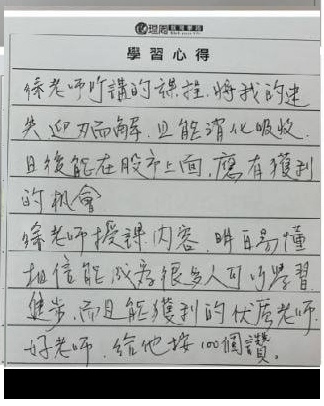 學習心得
徐老師所講的課程.將我的迷
失迎刃而解.且能消化吸收.
且後能在股市上面.應有獲利
的机會
徐老師授課內容.明白易懂
相信能成為很多人可以學習
進步.而且能獲利的优质老師.
好老師.給他按100個讚。